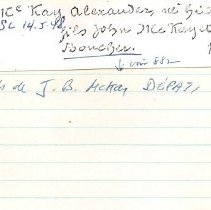 Mc Kay Alexander, né
SL 14.5.
fils John McKay et
Boucher.
↓ 882
de J. B. McKay DÉPAT,